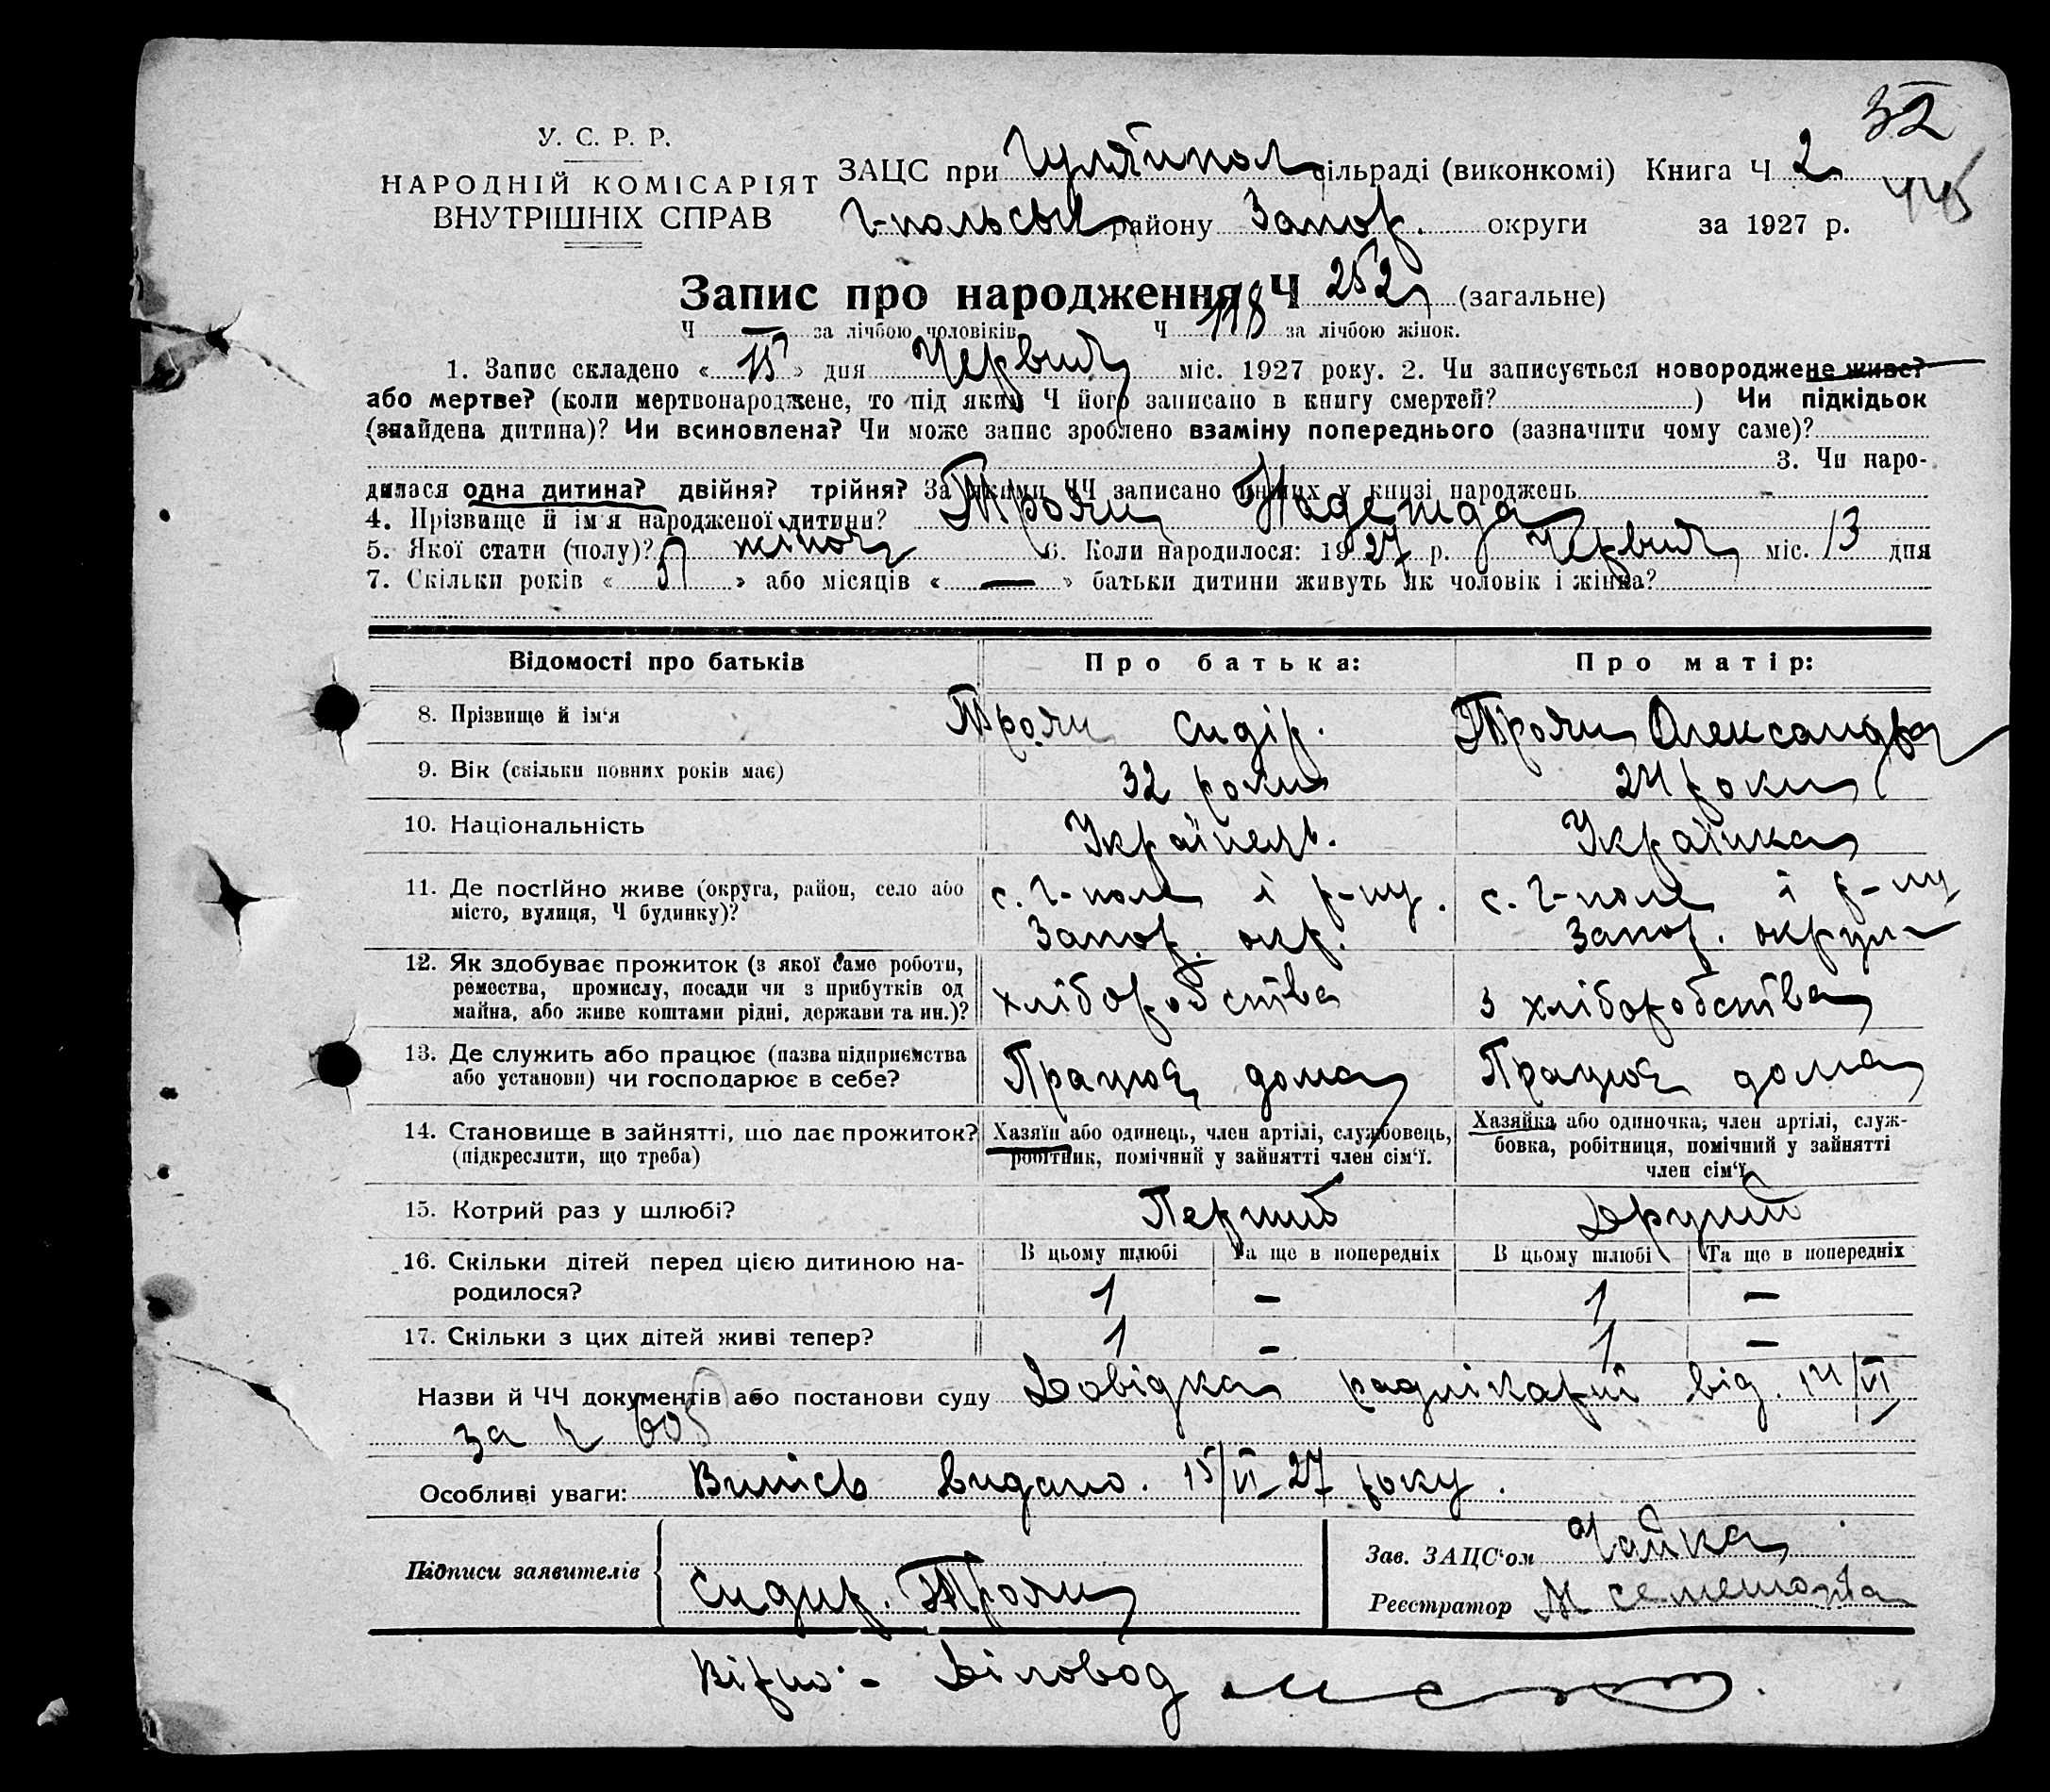 32
У. С. Р. Р.
НАРОДНІЙ КОМІСАРІЯТ
ВНУТРІШНІХ СПРАВ
445
ЗАЦС при Гуляйпол сільраді (виконкомі) Книга Ч 2
Г-польськ району Запор. округи за 1927 р.
Запис про народження Ч 252 (загальне)
Ч — за лічбою чоловіків Ч 118 за лічбою жінок.
1. Запис складено « 15 » дня Червня міс. 1927 року. 2. Чи записується новороджене живе?
або мертве? (коли мертвонароджене, то під яким Ч його записано в книгу смертей?) Чи підкідьок
(знайдена дитина)? Чи всиновлена? Чи може запис зроблено взаміну попереднього (зазначити чому саме)?
3. Чи наро-
дилася одна дитина? двійня? трійня? За якими ЧЧ записано інших у книзі народжень
4. Прізвище й ім'я народженої дитини? Троян Надежда
5. Якої стати (полу)? жіноч 6. Коли народилося: 1927 р. Червня міс. 13 дня
7. Скільки років « » або місяців « — » батьки дитини живуть як чоловік і жінка?
Відомості про батьків Про батька: Про матір:
8. Прізвище й ім'я Троян Сидір. Троян Олександра
9. Вік (скільки повних років має) 32 роки 24 роки
10. Національність Українець. Українка
11. Де постійно живе (округа, район, село або с. Г-поле і р-ну. с. Г-поле і р-ну
місто, вулиця, Ч будинку)? Запор. окр. Запор. округи
12. Як здобуває прожиток (з якої саме роботи,
ремества, промислу, посади чи з прибутків од хліборобства з хліборобства
майна, або живе коштами рідні, держави та ин.)?
13. Де служить або працює (назва підприємства Працює дома Працює дома
або установи) чи господарює в себе?
14. Становище в зайнятті, що дає прожиток? Хазяїн або одинець, член артілі, службовець, Хазяйка або одиночка, член артілі, служ-
(підкреслити, що треба) робітник, помічний у зайнятті член сім'ї. бовка, робітниця, помічний у зайнятті
член сім'ї
15. Котрий раз у шлюбі? Перший Другий
16. Скільки дітей перед цією дитиною на- В цьому шлюбі Та ще в попередніх В цьому шлюбі Та ще в попередніх
родилося? 1 — 1 —
17. Скільки з цих дітей живі тепер? 1 — 1 —
Назви й ЧЧ документів або постанови суду Довідка радлікарні від. 14/VI
за ч 605
Особливі уваги: Випісь видано. 15/VI-27 року.
Підписи заявителів Сидир. Троян
Зав. ЗАЦС'ом Чайка
Реєстратор М
Вірно:- Діловод